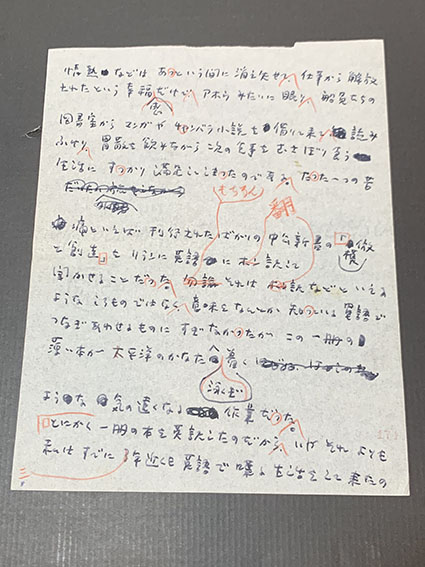 情熱などはあっという間に消え失せ、仕事から解放
されたという幸福だけど、アホみたいに眠り、船員たちの
図書室からマンガやチャンバラ小説を借りて来て読み
ふけり、胃散を飲みながら次の食事をむさぼり食う
生活にすっかり満足してしまったのである。たった一つの苦
痛といえば刊行されたばかりの中公新書の「模倣
と創造」を
もちろん
翻
に英語にホン訳して
聞かせることだった。勿論それは ホン訳などといえる
ようなしろものではなく、意味をなんとか知っている単語で
つなぎあわせるものにすぎなかったが、この一冊の
薄い本が太平洋のかなた
泳ぎ
着く
ような気の遠くなる作業だった。
とにかく一冊の本を英訳したのだから、いやそれよりも
私はすでに3年近くも英語で
来たの